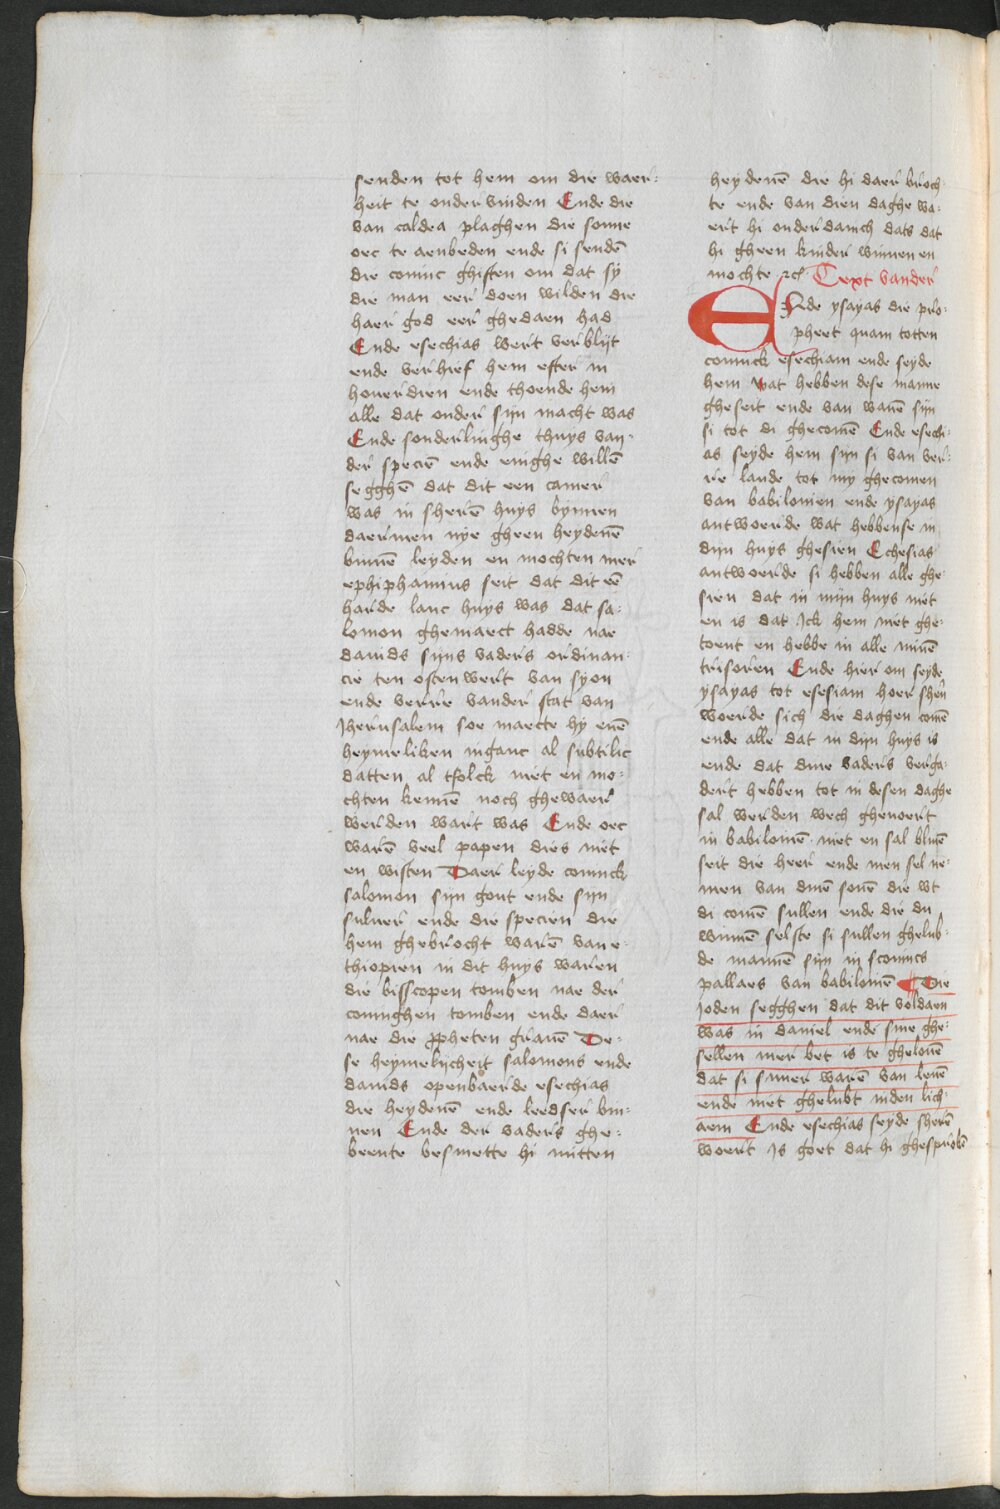 senden tot hem om die waer-
heit te ondervinden Ende die
van caldea plaghen die sonne
oec te aenbeden ende si sendē
die coninc ghiften om dat sy
die man eer doen wilden die
haer god eer ghedaen had
Ende esechias wert verblijt
ende verhief hem efter in
houerdien ende thoende hem
alle dat onder sijn macht was
Ende sonderlinghe thuys van-
der speciē ende enighe willē
segghē dat dit een camer
was in sherē huys bynnen
daermen nye gheen heydenē
binnē leyden en mochten mer
ephiphanius seit dat dit eē
harde lanc huys was dat sa-
lomon ghemaect hadde nae
dauids sijns vaders ordinan-
cie ten osten wert van syon
ende verre vander stat van
Jherusalem soe maecte hy enē
heymeliken inganc al subtilic
datten al tfolck niet en mo-
chten kennē noch ghewaer
werden wart was Ende oec
warē veel papen dies niet
en wisten Daer leyde coninck
salomon sijn gout ende sijn
suluer ende die specien die
hem ghebrocht warē van e-
thiopien in dit huys waren
die bisscopen tomben nae der
coninghen tomben ende daer
nae die ppheten grauē De-
se heymelijcheit salomons ende
dauids openbaerde esechias
die heydenē ende leedser bin-
nen Ende der vaders ghe-
beente besmette hi mitten
heydenē die hi daer broch-
te ende van dien daghe wa-
ert hi onderdanich dats dat
hi gheen kinder winnen en
mochte rc Text vander
ENde ysayas die pro-
pheet quam totten
coninck esechiam ende seyde
hem wat hebben dese manne
gheseit ende van wanē sijn
si tot di ghecomē Ende esech-
as seyde hem sijn si van ver-
re lande tot my ghecomen
van babilonien ende ysayas
antwoerde wat hebbense in
dijn huys ghesien Echesias
antwoerde si hebben alle ghe-
sien dat in mijn huys niet
en is dat Ick hem niet ghe-
toent en hebbe in alle minē
trisoren Ende hier om seyde
ysayas tot esesiam hoer sherē
woerde sich die daghen comē
ende alle dat in dijn huys is
ende dat dine vaders verga-
dert hebben tot in desen daghe
sal werden wech gheuoert
in babilonien niet en sal bliuē
seit die heer ende men sel ne-
men van dinē sonē die wt
di comē sullen ende die du
winnē selste si sullen ghelub-
de mannē sijn in sconincs
pallaes van babilonien Die
Joden segghen dat dit voldaen
was in daniel ende sine ghe-
sellen mer bet is te ghelouē
dat si suuer warē van leuē
ende niet ghelubt inden lich-
aem Ende esechias seyde sherē
woert Is goet dat hi ghesprokē